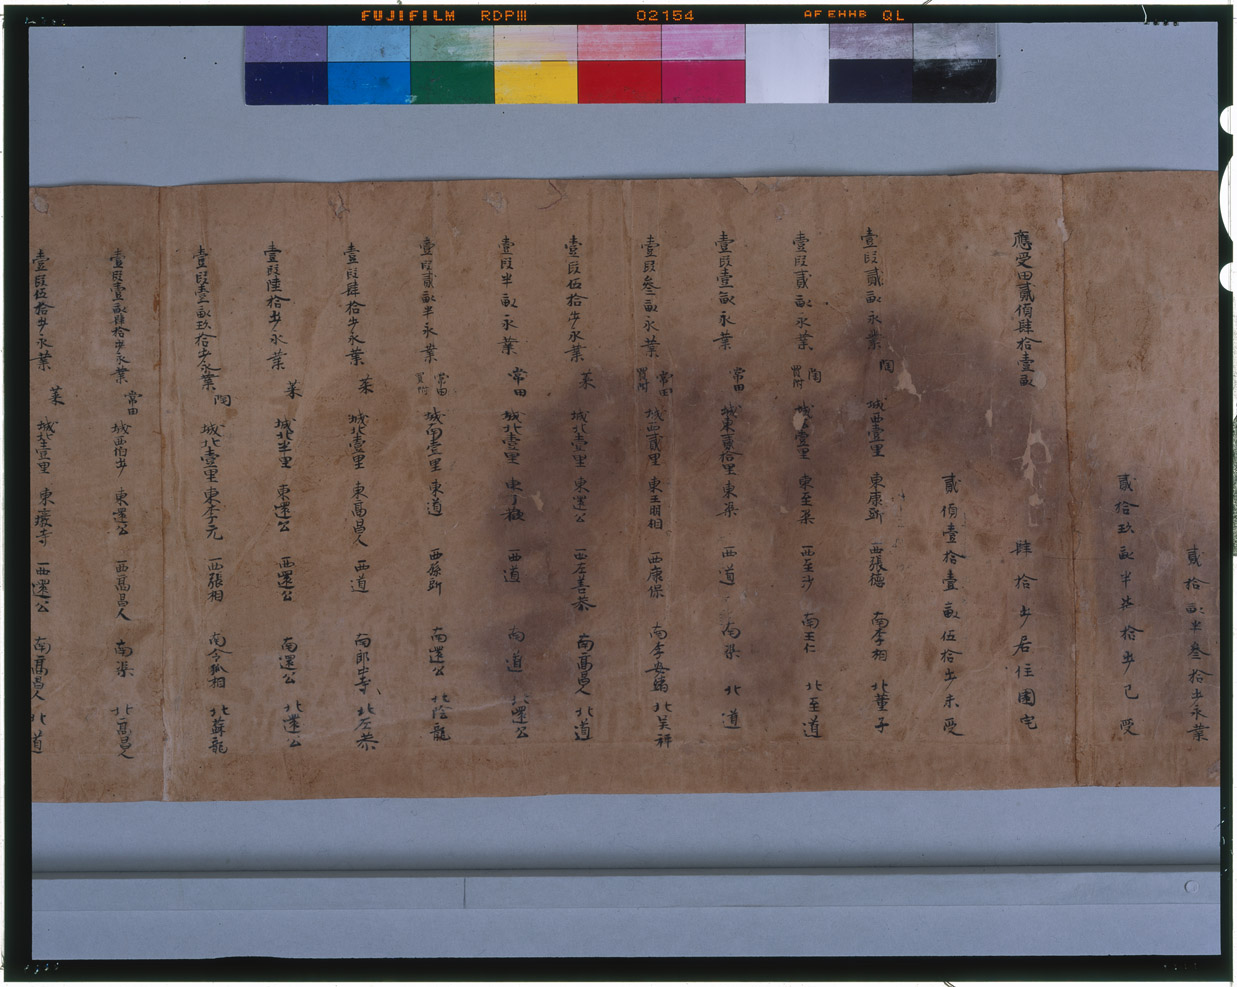 FUJIFILM RDPIII 02154 AFEHHB QL
貳拾畝半叁拾步永業
貳拾玖畝半柒拾步已受
應受田貳傾肆拾壹畝 肆拾步居住園宅
貳傾壹拾壹畝伍拾步未受
壹段貳畝永業 陶 城西壹里 東康 西張德 南李相 北董子
壹段貳畝永業 陶 買附 城 壹里 東至渠 西至沙 南王仁 北至道
壹段壹畝永業 常田 城東貳拾里 東渠 西道 南渠 北道
壹段叁畝永業 常田 買附 城西貳里 東王明相 西康保 南李安 北吴祥
壹段伍拾步永業 菜 城北壹里 東還公 西左善恭 南高昌人 北道
壹段半畝永業 常田 城北壹里 西道 南道 北還公
壹段貳畝半永業 常田 買附 城南壹里 東道 西孫 南還公 北陰龍
壹段肆拾步永業 菜 城北壹里 東高昌人 西道 南郎中寺 北左恭
壹段陸拾步永業 菜 城北半里 東還公 西還公 南還公 北還公
壹段壹畝玖拾步永業 陶 城北壹里 東李元 西張相 南令狐相 北蘇龍
壹段壹畝肆拾步永業 常田 城西 步 東還公 西高昌人 南渠 北高昌人
壹段伍拾步永業 菜 城北壹里 東 寺 西還公 南高昌人 北道